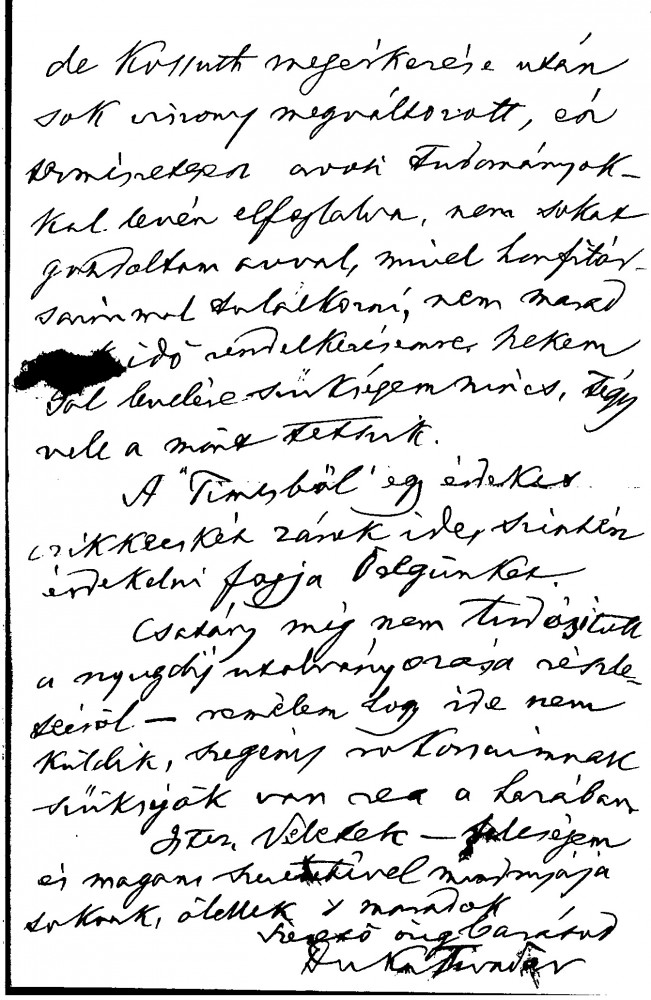 de Kossuth megérkezése után
sok viszony megváltozott, én
természetesen orvosi tudományok-
kal levén elfoglalva, nem sokat
gondoltam avval, mivel honfitár-
saimmal találkozni, nem marad
idő rendelkezésemre. nekem
levelére szükségem nincs, tégy
vele a mint tetszik.
A "Times"ból egy érdekes
czikkecskét zárok ide, szintén
érdekelni fogja Öregünket.
Csatáry még nem tudósított
a nyugdíj utalványozása részle-
teiről — remélem hogy ide nem
küldik, szegény rokonaimnak
szükségök van rea a hazában.
Isten Veletek — feleségem
és magam szeretetével mindnyája
tokank, ölellek s maradok
szerető öreg barátod
Duka Tivadar